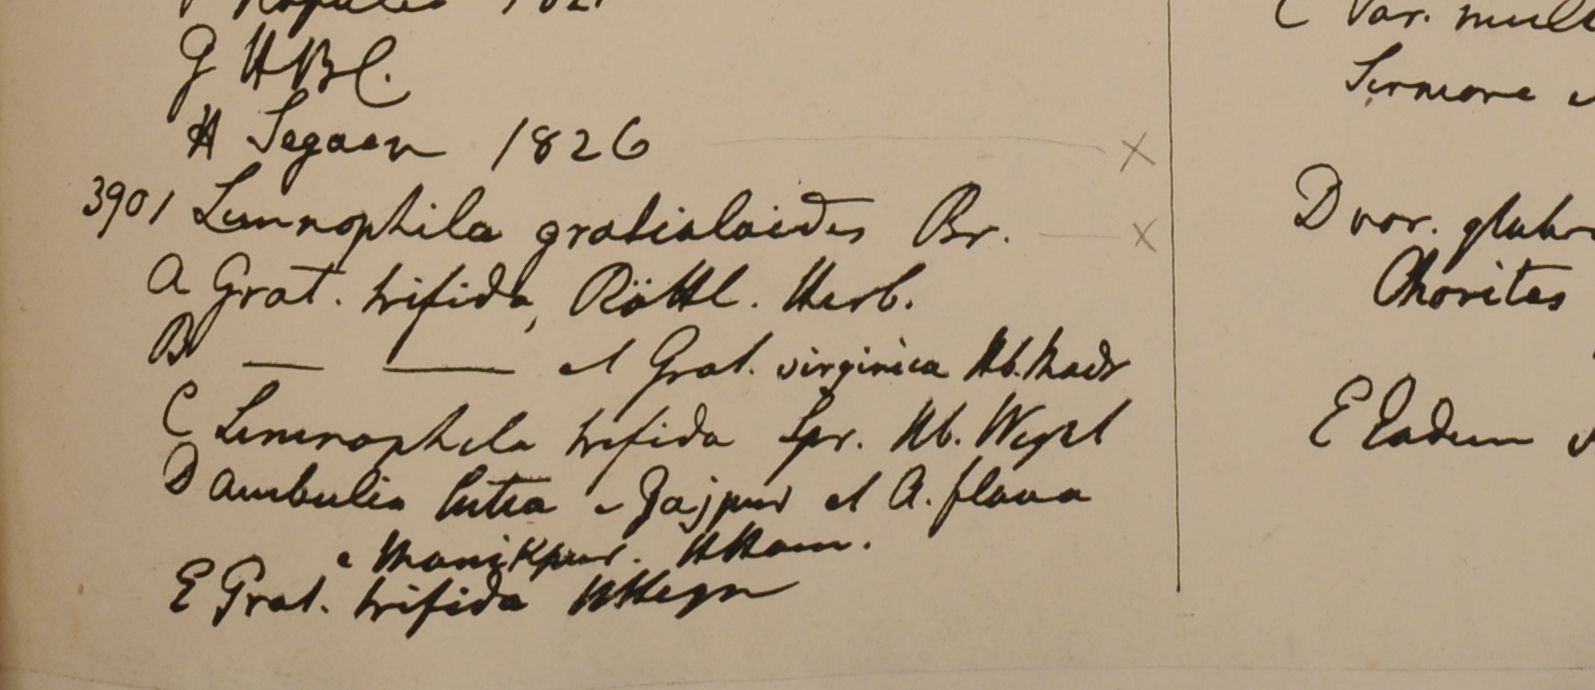 Napulea 182
G HBC.
H Segaen 1826 ——— x
3901 Limnophila gratialoides Br. — x
A Grat. trifida, Röttl. Herb.
B — — et Grat. virginica Hb. Madr
C Limnophila trifida Spr. Hb. Wight
D Ambulia lutea e Jajpur et A. flava
e Manikpur. HHam.
E Grat. trifida HHeyn
C Var. mull
Sirmore
D var. glabr
Choritas
E Eadem